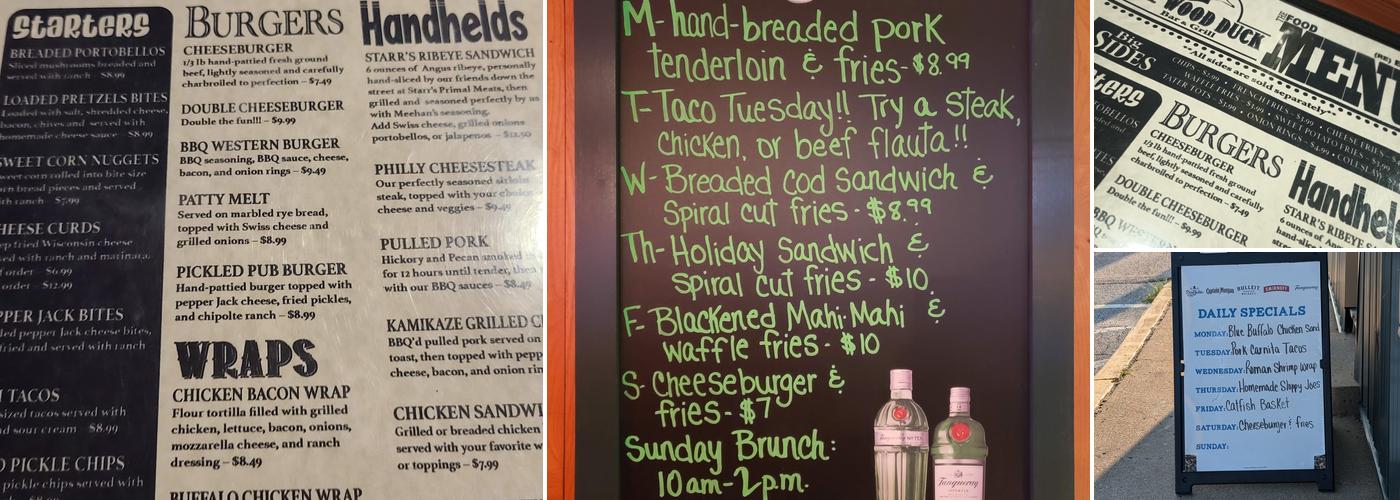 Starters
BREADED PORTOBELLOS
Sliced mushrooms breaded and
served with ranch - $8.99
LOADED PRETZELS BITES
Loaded with salt, shredded cheese,
bacon, chives and served with
homemade cheese sauce - $8.99
SWEET CORN NUGGETS
sweet corn rolled into bite size
bread pieces and served
with ranch - $7.99
HEESE CURDS
ep fried Wisconsin cheese
ed with ranch and marinara.
order - $6.99
order - $12.99
PPER JACK BITES
ed pepper Jack cheese bites,
fried and served with ranch
TACOS
sized tacos served with
d sour cream $8.99
PICKLE CHIPS
pickle chips served with
BURGERS
CHEESEBURGER
1/3 lb hand-pattied fresh ground
beef, lightly seasoned and carefully
charbroiled to perfection – $7.49
DOUBLE CHEESEBURGER
Double the fun!!! – $9.99
BBQ WESTERN BURGER
BBQ seasoning, BBQ sauce, cheese,
bacon, and onion rings – $9.49
PATTY MELT
Served on marbled rye bread,
topped with Swiss cheese and
grilled onions – $8.99
PICKLED PUB BURGER
Hand-pattied burger topped with
pepper Jack cheese, fried pickles,
and chipolte ranch – $8.99
WRAPS
CHICKEN BACON WRAP
Flour tortilla filled with grilled
chicken, lettuce, bacon, onions,
mozzarella cheese, and ranch
dressing – $8.49
BUFFALO CHICKEN WRAP
Handhelds
STARR'S RIBEYE SANDWICH
6 ounces of Angus ribeye, personally
hand-sliced by our friends down the
street at Starr's Primal Meats, then
grilled and seasoned perfectly by us
with Meehan's seasoning.
Add Swiss cheese, grilled onions
portobellos, or jalapenos – $12.50
PHILLY CHEESESTEAK
Our perfectly seasoned sirloin
steak, topped with your choice
cheese and veggies – $9.49
PULLED PORK
Hickory and Pecan smoked
for 12 hours until tender, then
with our BBQ sauces – $8.49
KAMIKAZE GRILLED C
BBQ'd pulled pork served on
toast, then topped with pepp
cheese, bacon, and onion rin
CHICKEN SANDWI
Grilled or breaded chicken
served with your favorite w
or toppings – $7.99
M-hand-breaded pork
tenderloin & fries-$8.99
T-Taco Tuesday!! Try a steak,
chicken, or beef flauta!!
W-Breaded cod sandwich &
Spiral cut fries - $8.99
Th-Holiday Sandwich &
Spiral cut fries - $10
F- Blackened Mahi-Mahi &
waffle fries - $10
S- Cheeseburger &
fries - $7
Sunday Brunch:
10am-2pm.
Tanqueray
Tanqueray
WOOD DUCK
Bar & Grill
FOOD
MENU
Big SIDES
**All sides are sold separately**
CHIPS - $2.99 • FRENCH FRIES - $3.99
WAFFLE FRIES - $3.99 •
TATER TOTS - $3.99 • SWEET POTATO FRIES
ONION RINGS - $3.99 • COLE SLAW
BURGERS
CHEESEBURGER
1/3 lb hand-pattied fresh ground
beef, lightly seasoned and carefully
charbroiled to perfection – $7.49
DOUBLE CHEESEBURGER
Double the fun!!! – $9.99
BBQ WESTERN
Handhel
STARR'S RIBEYE SA
6 ounces of Angus ribeye
hand-sliced
Captain Morgan
BULLEIT
SMIRNOFF
Tanqueray
DAILY SPECIALS
MONDAY: Blue Buffalo Chicken Sand
TUESDAY: Pork Carnita Tacos
WEDNESDAY: Roman Shrimp Wrap
THURSDAY: Homemade Sloppy Joes
FRIDAY: Catfish Basket
SATURDAY: Cheeseburger & fries
SUNDAY: